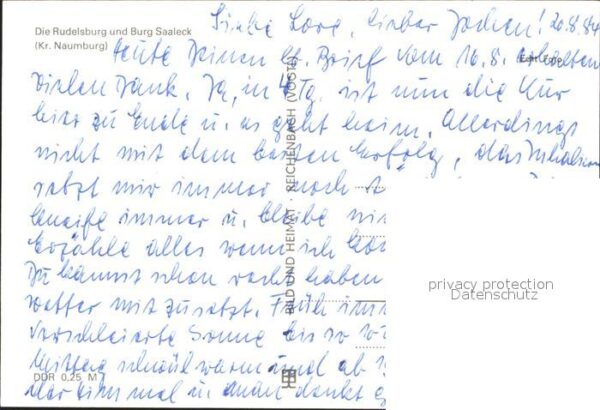 Die Rudelsburg und Burg Saaleck
(Kr. Naumburg)
Liebe Lore, lieber Jochen! 20.8.84
Heute Deinen lb. Brief vom 16.8. erhalten
Vielen Dank. Ja, in 4 Tg. ist nun die Kur
hier zu Ende u. es geht heim. Allerdings
nicht mit dem besten Erfolg, das
setzt mir immer noch
immer u. bleibe
Erzähle alles wenn ich
Du kannst schon recht haben
wetter mit zusetzt. Früh
verschleierte Sonne bis so
Mittag schwül warm und ab
mal u. man denkt
BILD UND HEIMAT · REICHENBACH (VOGTL)
DDR 0,25 M
privacy protection
Datenschutz